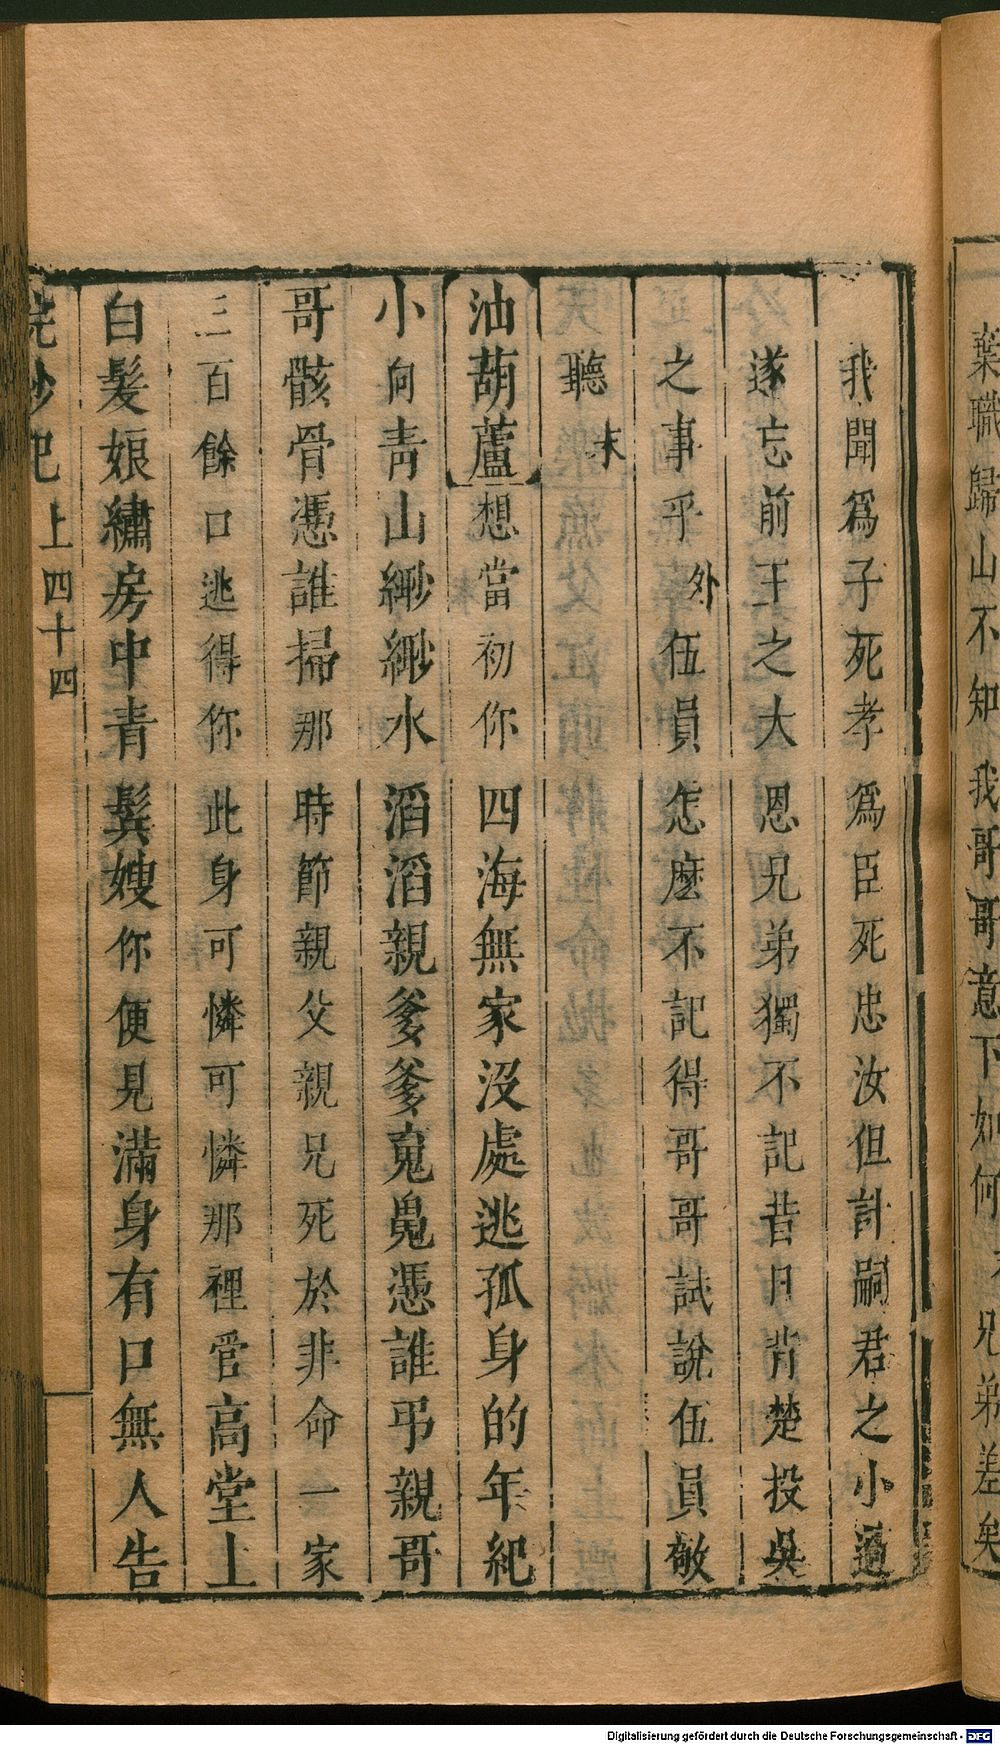 葉職歸山不知我哥哥意下如何 兄弟差矣
我聞爲子死孝爲臣死忠汝但計嗣君之小過
遂忘前王之大恩兄弟獨不記昔日背楚投吳
之事乎外伍員怎麽不記得哥哥試說伍員敬
聽末
油葫蘆想當初你四海無家沒處逃孤身的年紀
小向青山緲緲水滔滔親爹爹䰟䰟憑誰弔親哥
哥骸骨憑誰掃那時節親父親兄死於非命一家
三百餘口逃得你此身可憐可憐那裡管高堂上
白髮娘繡房中青鬢嫂你便見滿身有口無人告
浣紗記上四十四
Digitalisierung gefördert durch die Deutsche Forschungsgemeinschaft - DFG